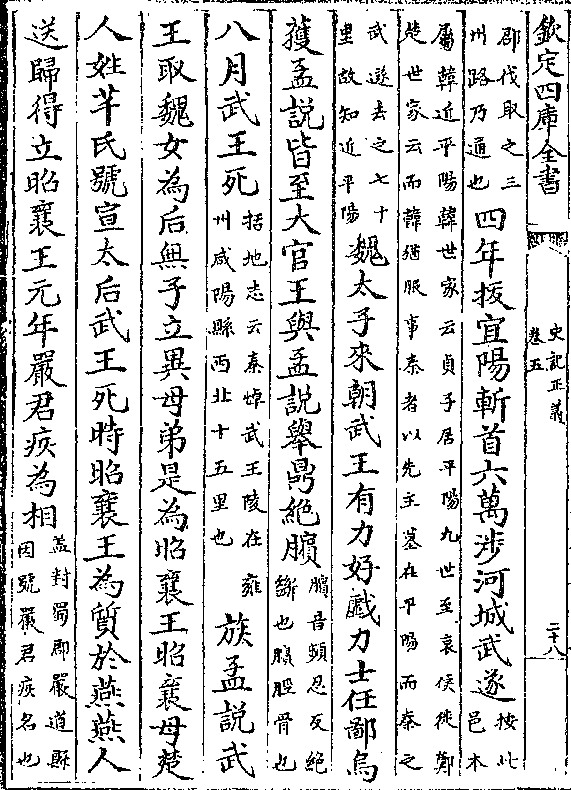 欽定四庫全書
史記正義
卷五
二十八
郡伐取之三
州路乃通也
四年拔宜陽斬首六萬涉河城武遂
按此
邑本
屬韓近平陽韓世家云貞子居平陽九世至哀侯徙鄭
楚世家云而韓猶服事秦者以先王墓在平陽而秦之
武遂去之七十
里故知近平陽
魏太子來朝武王有力好戲力士任鄙烏
獲孟說皆至大官王與孟說舉鼎絶臏
臏音頻忍反絶
斷也臏脛骨也
八月武王死
括地志云秦悼武王陵在雍
州咸陽縣西北十五里也
族孟說武
王取魏女為后無子立異母弟是為昭襄王昭襄母楚
人姓芊氏號宣太后武王死時昭襄王為質於燕燕人
送歸得立昭襄王元年嚴君疾為相
蓋封蜀郡嚴道縣
因號嚴君疾名也